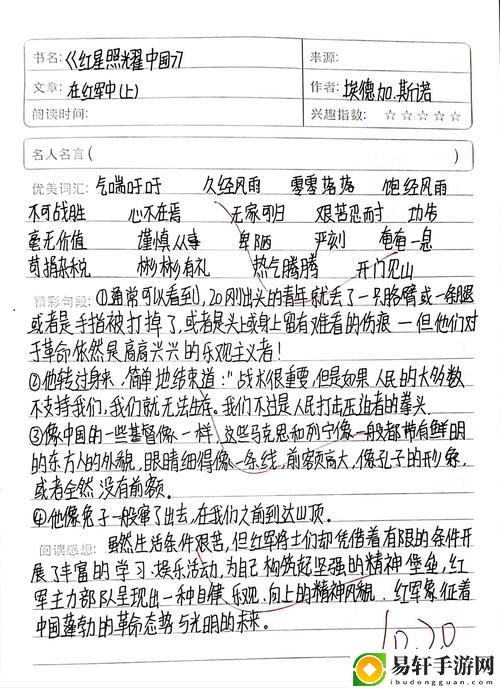 书名:《红星照耀中国》
来源:
文章: 在红军中(上)
作者: 埃德加.斯诺
阅读时间:
兴趣指数: ☆ ☆ ☆ ☆ ☆
名人名言(
)
优美词汇: 气喘吁吁 久经风雨 零零落落 饱经风雨
不可战胜 心不在焉 无家可归 艰苦忍耐 功伟
毫无价值 谨慎从事 卑陋 严刻 奄奄一息
苛捐杂税 彬彬有礼 热气腾腾 开门见山
精彩句段: ①通常可以看到,20刚出头的青年就丢了一只胳臂或一条腿
或者是手指被打掉了,或者是头上或身上留有难看的伤痕—但他们对
于革命依然是高高兴兴的乐观主义者!
②他转过身来,简单地结束道:"战术很重要,但是如果人民的大多数
不支持我们,我们就无法生存。我们不过是人民打击压迫者的拳头.
③像中国的一些基督像一样,这些马克思和列宁像一般都带有鲜明
的东方人的外貌,眼睛细得像一条线,前额高大,像孔子的形象,
或者全然没有前额。
④他像兔子一般窜了出去,在我们之前到达山顶。
阅读感想: 虽然生活条件艰苦,但红军将士们却凭借着有限的条件开
展了丰富的学习.娱乐活动,为自己构筑起坚强的精神堡垒,红
军主力部队呈现出一种自律、乐观、向上的精神风貌.红军象征着
中国蓬勃的革命态势与光明的未来。
10.20
易轩手游网
ibudongguan.com